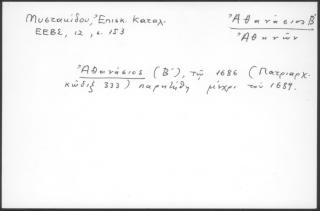 Μυστακίδου, Ἐπισκ. Καταλ.
ΕΕΒΣ, 12, σ. 153
Ἀθανάσιος Β´
Ἀθηνῶν
Ἀθανάσιος (Β´), τῷ 1686 (Πατριαρχ.
κώδιξ 333) παρητήθη μέχρι τοῦ 1689.